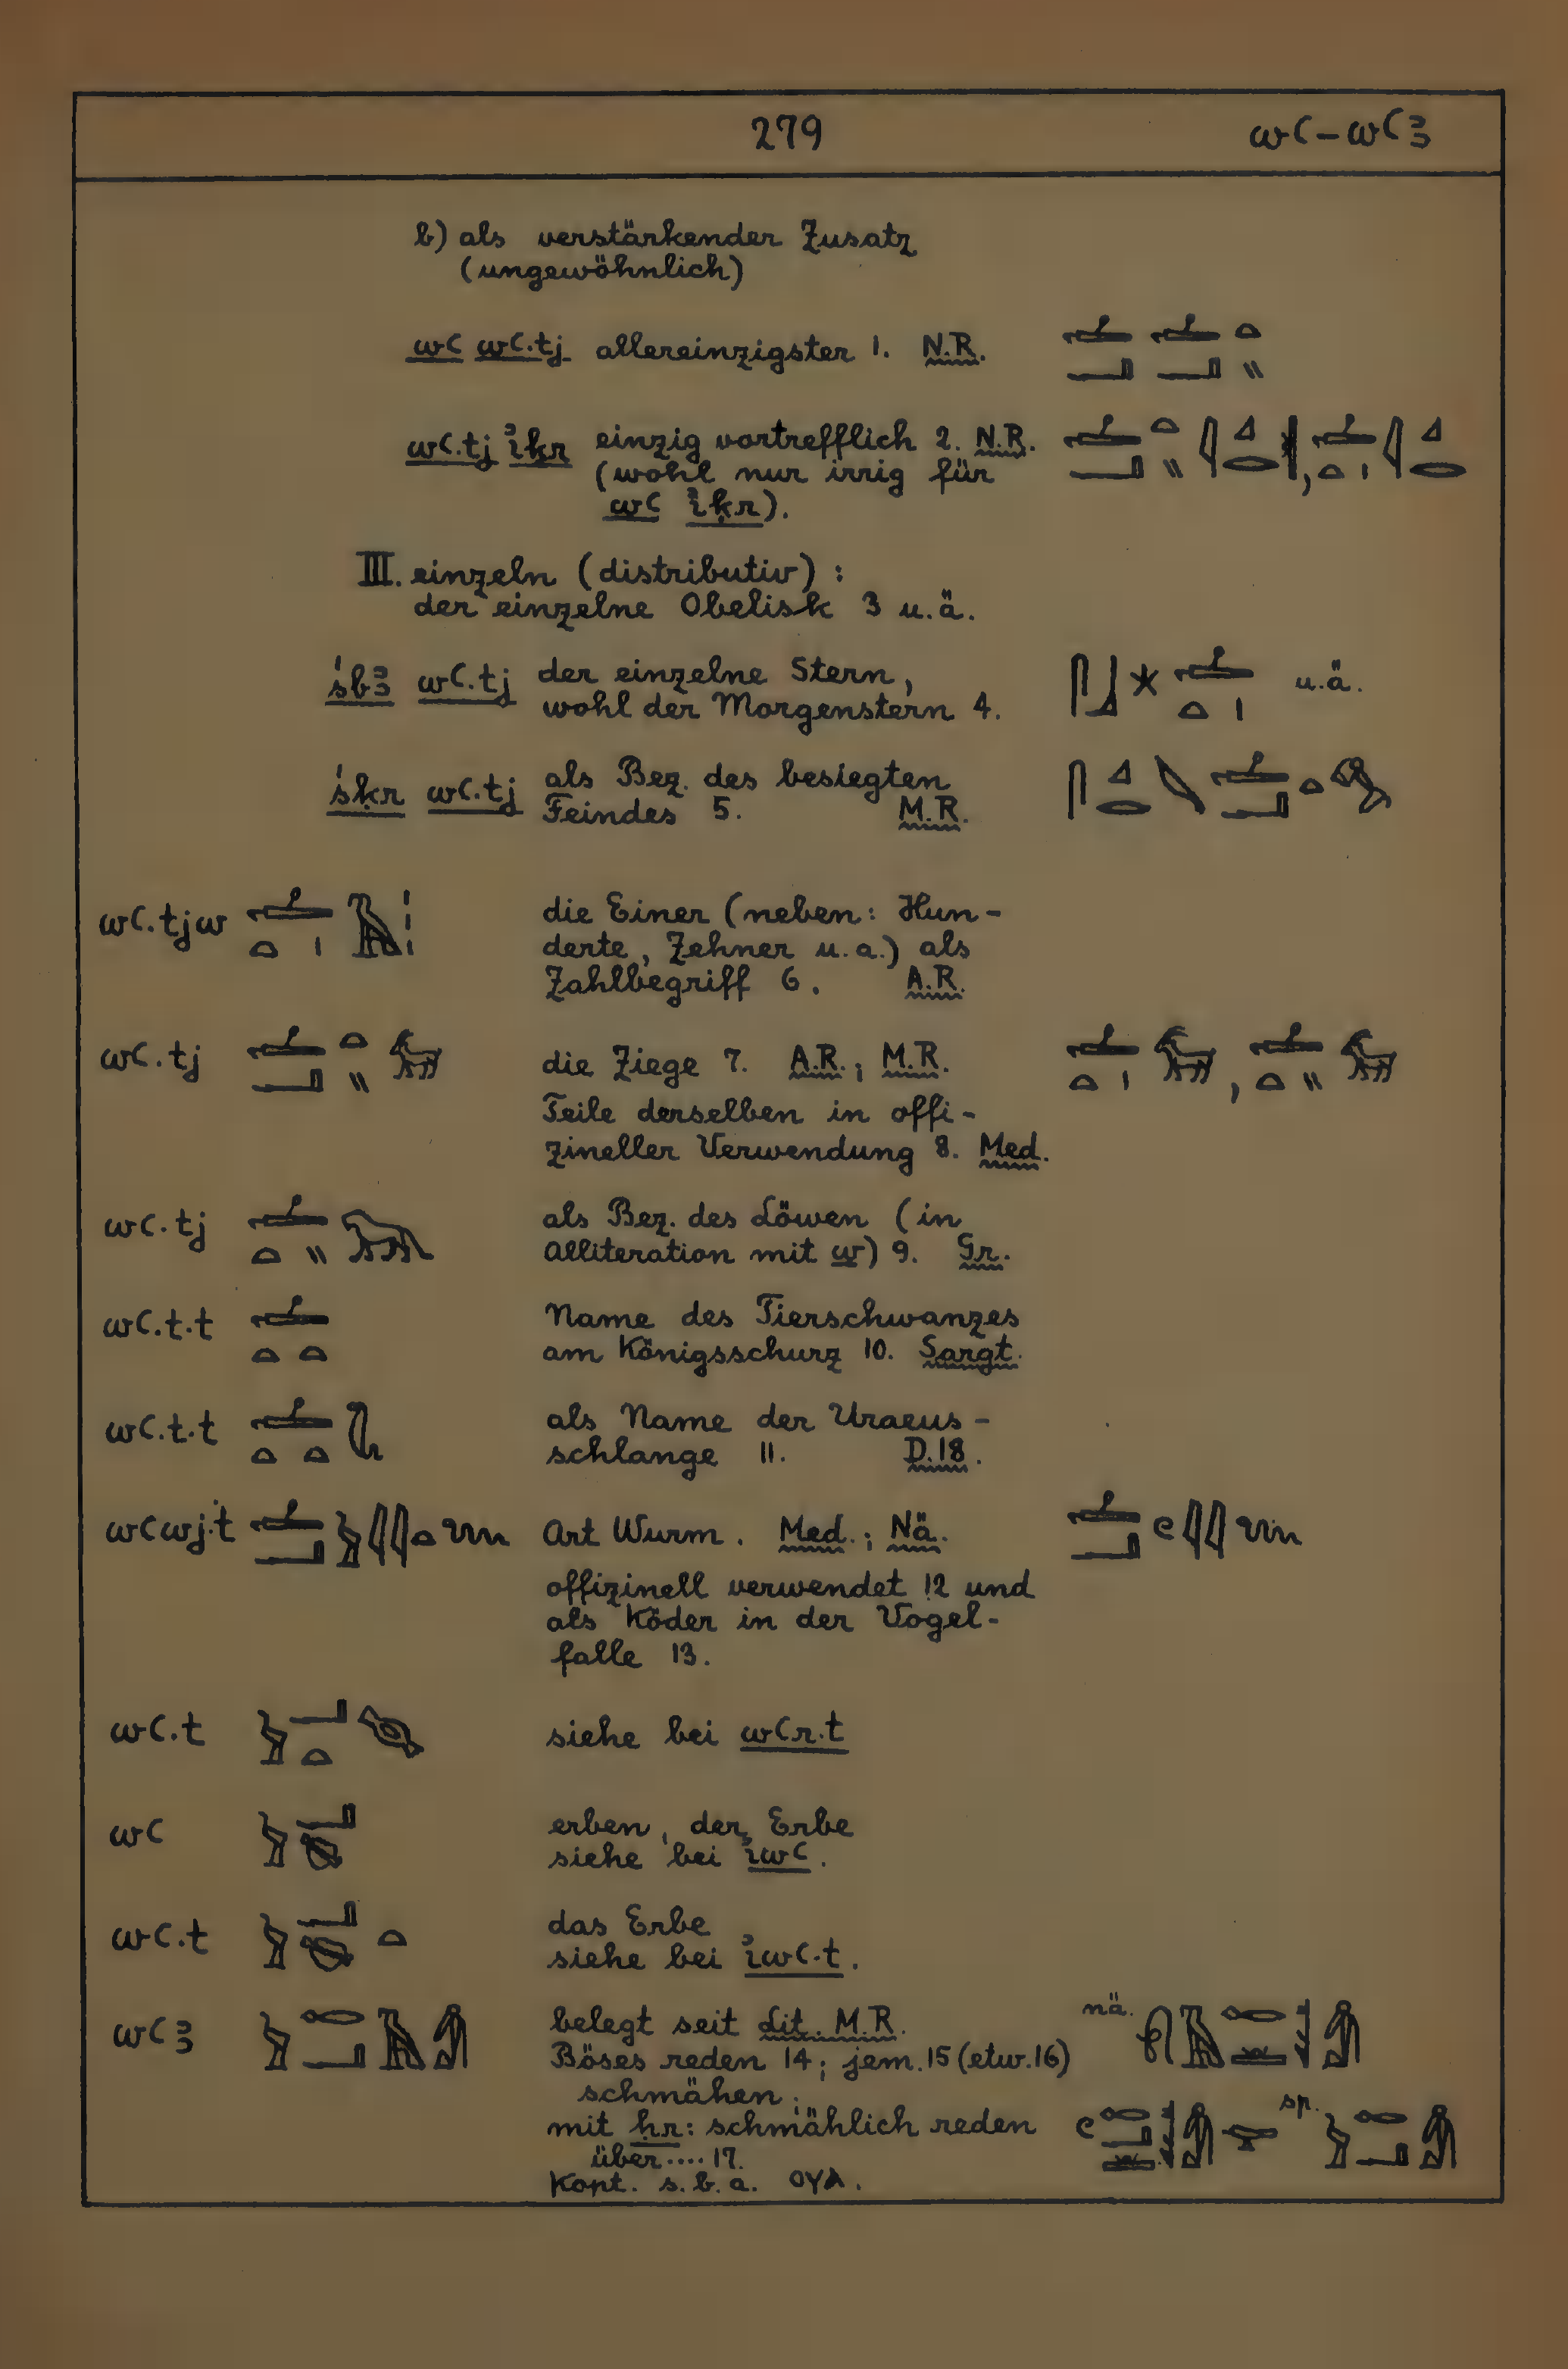 279
wꜥ – wꜥꜣ
b) als verstärkender Zusatz
(ungewöhnlich)
wꜥ wꜥ.tj allereinzigster 1. N.R.
wꜥ.tj ı͗ḳr einzig vortrefflich 2. N.R.
(wohl nur irrig für
wꜥ ı͗ḳr).
III. einzeln (distributiv):
der einzelne Obelisk 3 u.ä.
śbꜣ wꜥ.tj der einzelne Stern, u.ä.
wohl der Morgenstern 4.
śḳr wꜥ.tj als Bez. des besiegten
Feindes 5. M.R.
wꜥ.tjw die Einer (neben: Hun-
derte, Zehner u.a.) als
Zahlbegriff 6. A.R.
wꜥ.tj die Ziege 7. A.R.; M.R.
Teile derselben in offi-
zineller Verwendung 8. Med.
wꜥ.tj als Bez. des Löwen (in
Alliteration mit w) 9. Gr.
wꜥ.t.t Name des Tierschwanzes
am Königsschurz 10. Sargt.
wꜥ.t.t als Name der Uraeus-
schlange 11. D.18.
wꜥwj.t Art Wurm. Med.; Nä.
offizinell verwendet 12 und
als Köder in der Vogel-
falle 13.
wꜥ.t siehe bei wꜥr.t
wꜥ erben, der Erbe
siehe bei ı͗wꜥ.
wꜥ.t das Erbe
siehe bei ı͗wꜥ.t.
wꜥꜣ belegt seit Lit. M.R. nä.
Böses reden 14; jem. 15 (etw. 16)
schmähen;
mit ḥr: schmählich reden sp.
über .... 17.
Kopt. s.b.a. ⲟⲩⲁ.